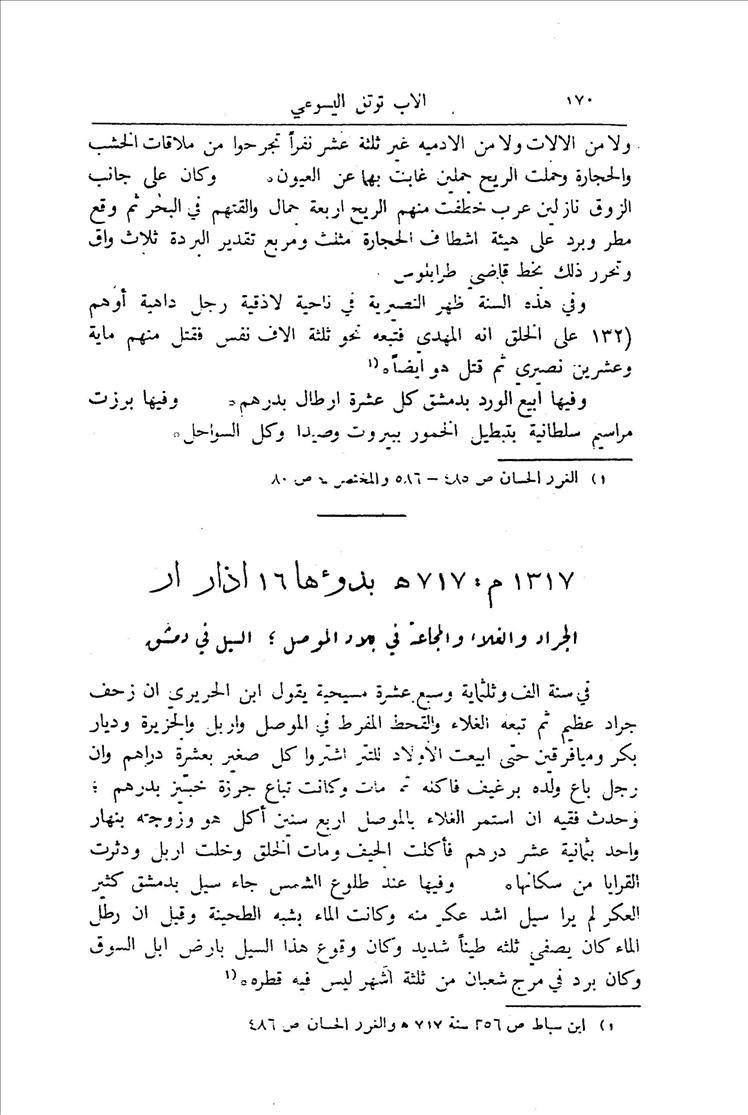 ١٧٠ الاب توتل اليسوعي
ولا من الالات ولا من الادميه غير ثلثة عشر نفراً تجرحوا من ملاقات الخشب
والحجارة وحملت الريح حملين غابت بهما عن العيون٠ وكان على جانب
الزوق نازلين عرب خطفت منهم الريح اربعة جمال والقتهم في البحر ثم وقع
مطر وبرد على هيئة اشطاف الحجارة مثلث ومربع تقدير البردة ثلاث واق
وتحرر ذلك بخط قاضي طرابلوس
وفي هذه السنة ظهر النصيرية في ناحية لاذقية رجل داهية أوهم
(١٣٢ على الخلق انه المهدي فتبعه نحو ثلثة الاف نفس فقتل منهم ماية
وعشرين نصيري ثم قتل هو ايضاً٠(١
وفيها ابيع الورد بدمشق كل عشرة ارطال بدرهم٠ وفيها برزت
مراسيم سلطانية بتبطيل الخمور ببيروت وصيدا وكل السواحل٠
١) الغرر الحسان ص ٤٨٥ – ٥٨٦ والمختصر ٤ ص ٨٠
١٣١٧ م: ٧١٧ ه بدوءها ١٦ اذار ار
الجراد والغلاء والمجاعة في بلاد الموصل ؛ السيل في دمشق
في سنة الف وثلثماية وسبع عشرة مسيحية يقول ابن الحريري ان زحف
جراد عظيم ثم تبعه الغلاء والقحط المفرط في الموصل واربل والجزيرة وديار
بكر وميافرقين حتى ابيعت الأولاد للتتر اشتروا كل صغير بعشرة دراهم وان
رجل باع ولده برغيف فاكله ثم مات وكانت تباع جرزة خبيز بدرهم ؛
وحدث فقيه ان استمر الغلاء بالموصل اربع سنين أكل هو وزوجته بنهار
واحد بثمانية عشر درهم فأكلت الجيف ومات الخلق وخلت اربل ودثرت
القرايا من سكانها٠ وفيها عند طلوع الشمس جاء سيل بدمشق كثير
العكر لم يرا سيل اشد عكر منه وكانت الماء بشبه الطحينة وقيل ان رطل
الماء كان يصفي ثلثه طيناً شديد وكان وقوع هذا السيل بارض ابل السوق
وكان برد في مرج شعبان من ثلثة اشهر ليس فيه قطره٠(١
١) ابن سباط ص ٢٥٦ سنة ٧١٧ ه والغرر الحسان ص ٤٨٦